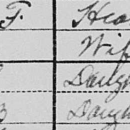 F. Hea
Wif
Daugh
Daugh